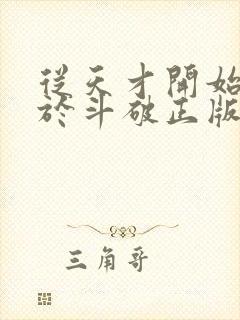 從天才開始
於斗破正版
三角哥